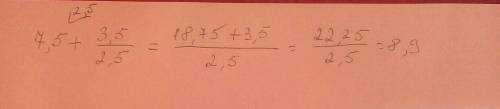 2,5
7,5 + 3,5/2,5 = 18,75+3,5/2,5 = 22,25/2,5 = 8,9